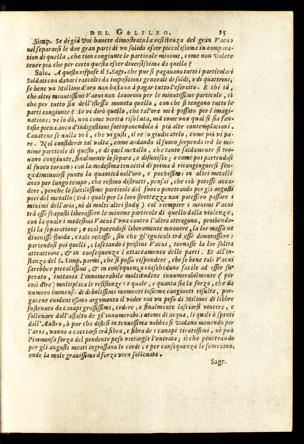 DEL GALILEO. 15
Simp. Se di già Voi havete dimostrato la resistenza del gran Vacuo
nel separarsi le due gran parti di vn solido esser piccolissima in compara-
tion di quella, che tien congiunte le particole minime, come non volete
tener più che per certo questa esser diversissima da quella?
Salv. A questo rispose il S. Sagr. che pur si pagauano tutti i particolari
Soldati con danari raccolti da imposizioni generali di soldi, e di quattrini,
se bene vn Million d'oro non bastaua à pagar tutto l'esercito. E chi sà,
che altri minutissimi Vacui non lauorino per le minutissime particole, si
che per tutto sia dell'istessa moneta quello, con che si tengono tutte le
parti congiunte? io vi dirò quello, che tal'ora mi è passato per l'imagi-
nazione; ve lo dò, non come verità risoluta, mà come vna qual si sia fan-
tasia piena anco d'indigestioni sottoponendola à più alte contemplazioni.
Cauatene se nulla vi è, che vi gusti, il resto giudicatelo, come più vi pa-
re. Nel considerar tal volta, come andando il fuoco serpendo trà le mi-
nime particole di questo, e di quel metallo, che tanto saldamente si tro-
uano congiunte, finalmente le separa, e disunisce; e come poi partendosi
il fuoco tornano con la medesima tenacità di prima à ricongiungersi sen-
za diminuirsi punto la quantità nell'oro, e pochissimo in altri metalli
anco per lungo tempo, che restino distrutti, pensai, che ciò potesse acca-
dere, perche le sottilissime particole del fuoco penetrando per gli angusti
pori del metallo (trà i quali per la loro strettezza non potessero passare i
minimi dell'aria, nè di molti altri fluidi) col riempiere i minimi Vacui
trà esse fraposti liberassero le minime particole di quello dalla violenza,
con la quale i medesimi Vacui l'vna contro l'altra attraggono, prohiben-
gli la separazione; e così potendosi liberamente muouere, la lor massa ne
diuenisse fluida, e tale restasse, sin che gl'ignicoli trà esse dimorassero:
partendosi poi quelli, e lasciando i pristini Vacui, tornasse la lor solita
attrazione, & in consequenza l'attaccamento delle parti. Et all'in-
stanza del S. Simp. parmi, che si possa rispondere, che se bene tali Vacui
sarebber piccolissimi, & in consequenza ciascheduno facile ad esser su-
perato, tuttauia l'innumerabile moltitudine innumerabilmente (per
così dire) multiplica le resistenze: e quale, e quanta sia la forza, che da
numero immenso di debolissimi momenti insieme congiunti risulta, por-
gacene euidentissimo argomento il veder noi vn peso di Milioni di libbre
sostenuto da canapi grossissimi, cedere, e finalmente lasciarsi vincere, e
solleuare dall'assalto de gl'innumerabili atomi di acqua, li quali ò spinti
dall'Austro, ò pur che distesi in tenuissima nebbia si vadano mouendo per
l'aria, vanno à cacciarsi trà fibra, e fibra de i canapi tiratissimi, nè può
l'immensa forza del pendente peso vietargli l'entrata; si che penetrando
per gli angusti meati ingrossano le corde, e per consequenza le scorciano,
onde la mole grauissima à forza vien solleuata.
Sagr.